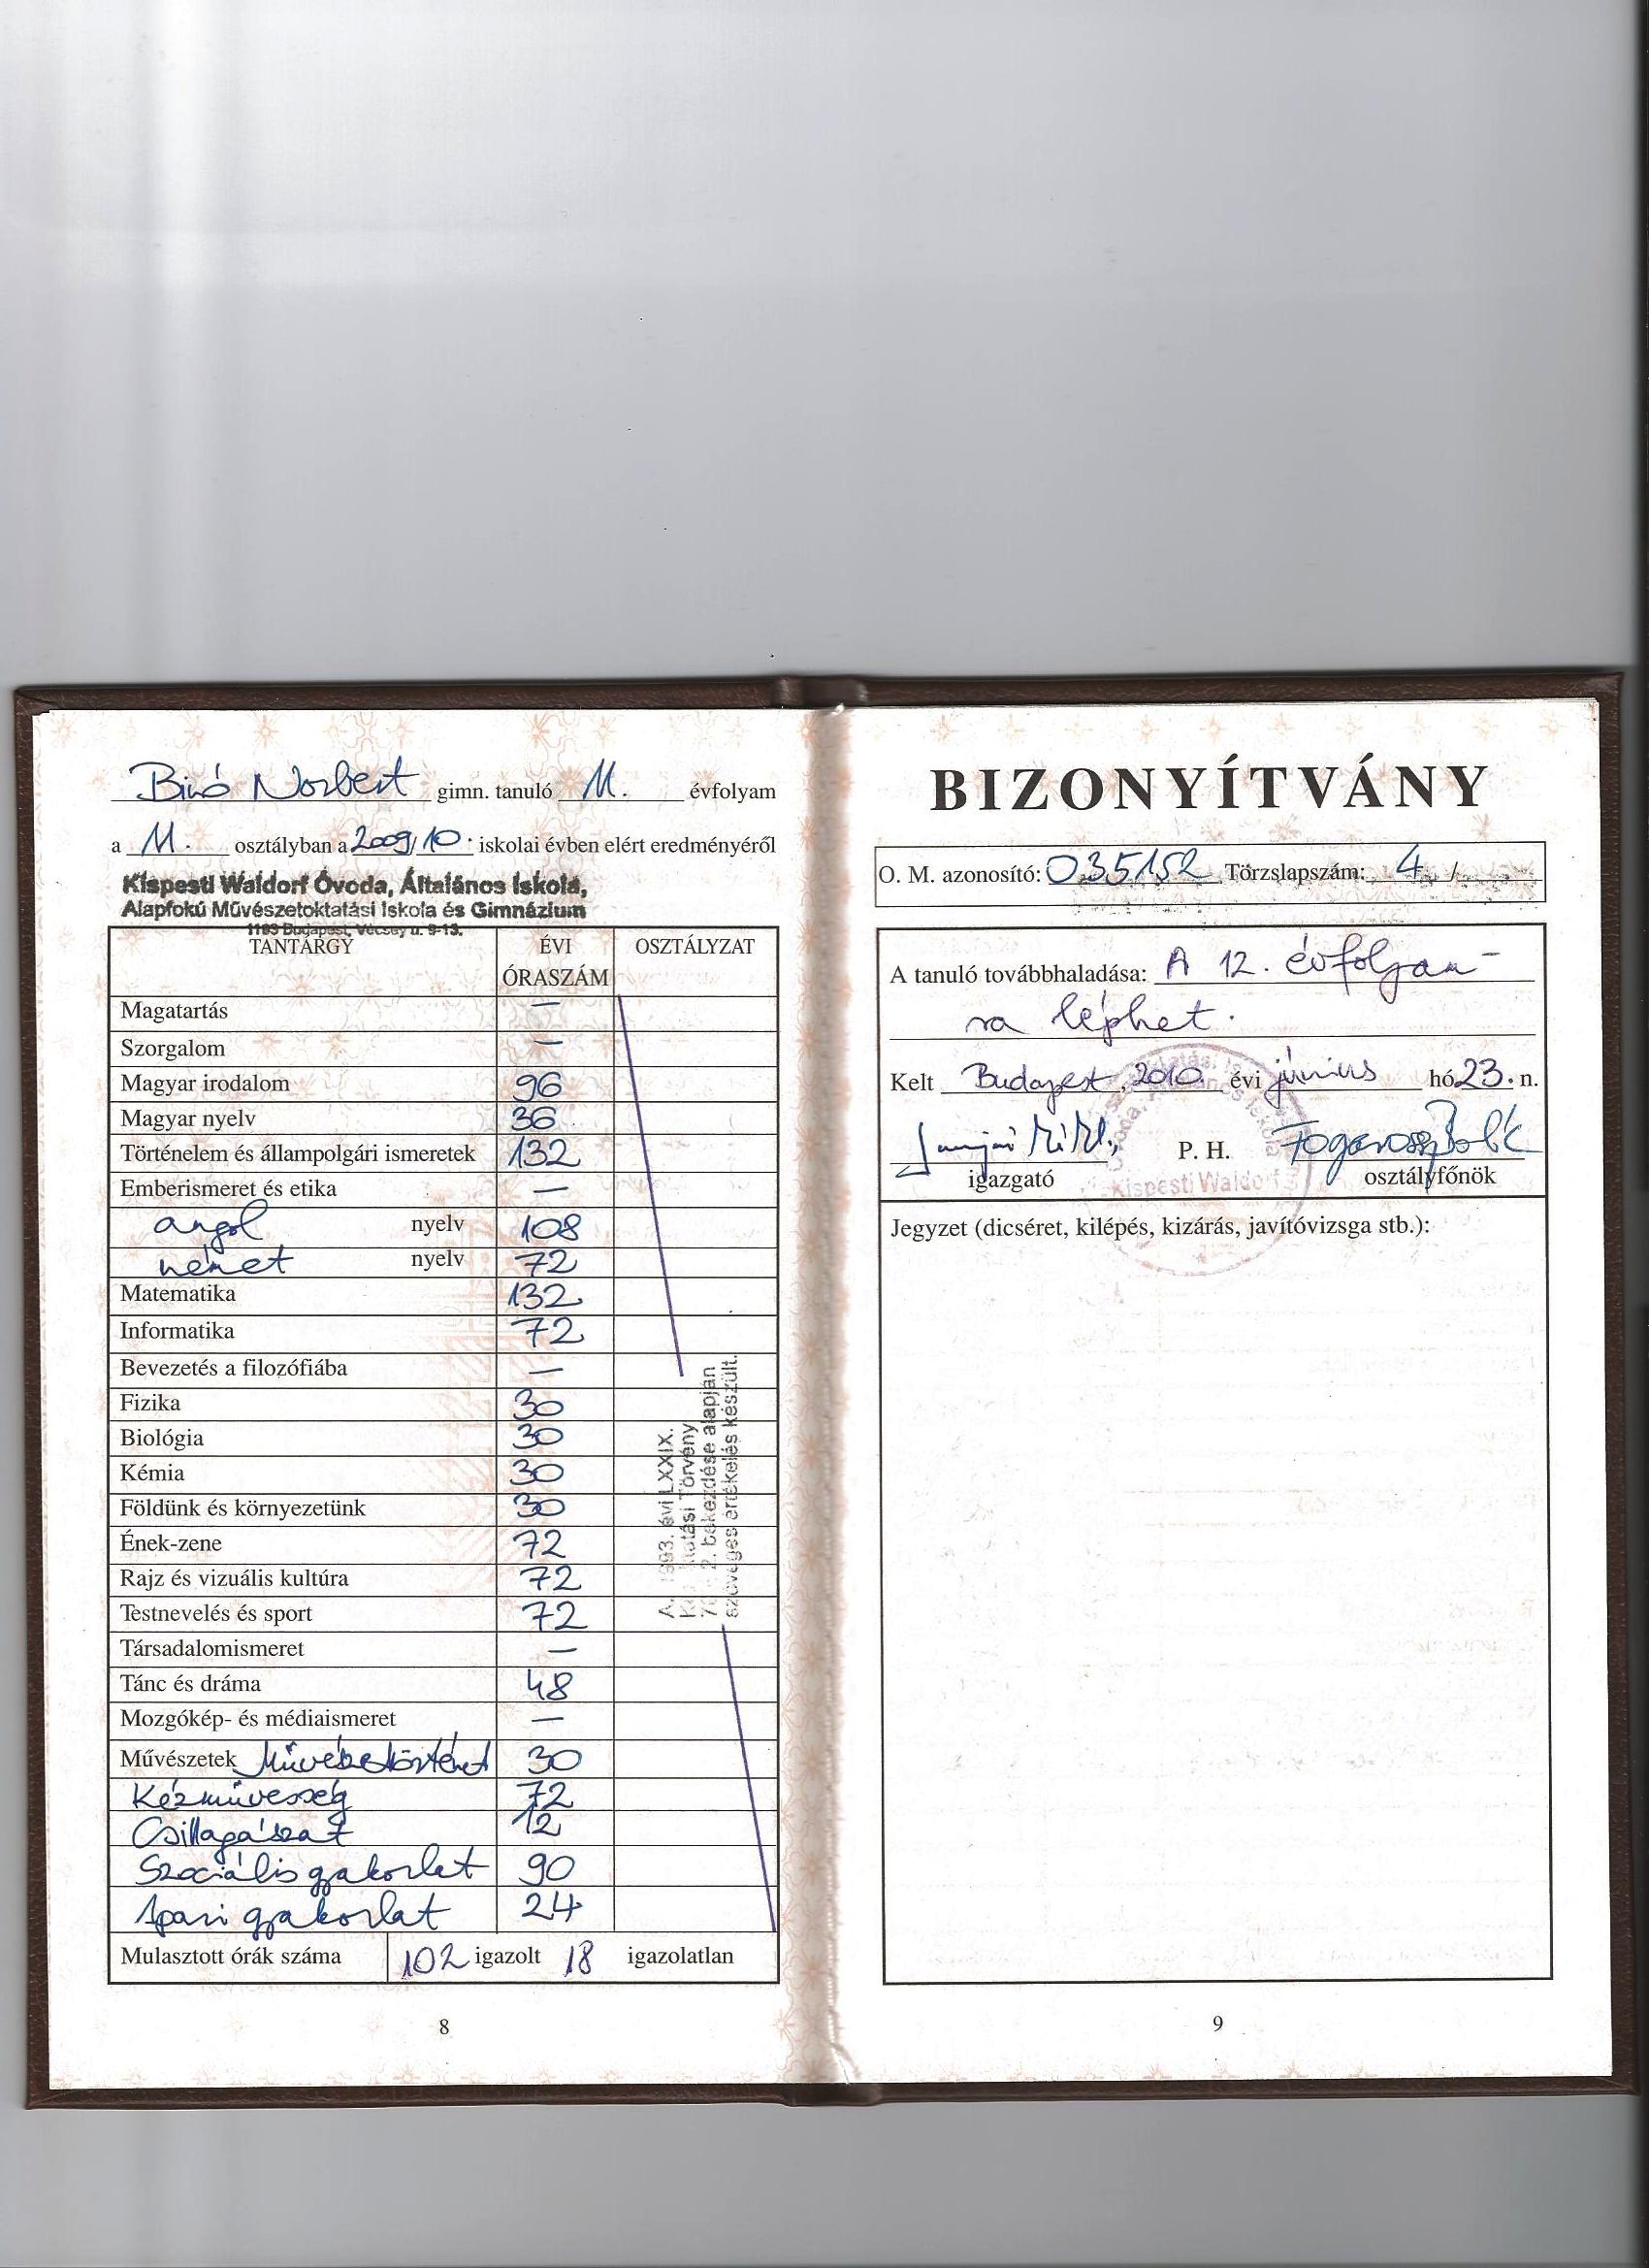 Biró Norbert gimn. tanuló 11. évfolyam
a 11. osztályban a 2009/10. iskolai évben elért eredményéről
Kispesti Waldorf Óvoda, Általános Iskola,
Alapfokú Művészetoktatási Iskola és Gimnázium
1193 Budapest, Vécsey u. 9-13.
TANTÁRGY ÉVI ÓRASZÁM OSZTÁLYZAT
Magatartás —
Szorgalom —
Magyar irodalom 96
Magyar nyelv 36
Történelem és állampolgári ismeretek 132
Emberismeret és etika —
angol nyelv 108
német nyelv 72
Matematika 132
Informatika 72
Bevezetés a filozófiába —
Fizika 30
Biológia 30
Kémia 30
Földünk és környezetünk 30
Ének-zene 72
Rajz és vizuális kultúra 72
Testnevelés és sport 72
Társadalomismeret —
Tánc és dráma 48
Mozgókép- és médiaismeret —
Művészetek Művészettörténet 30
Kézművesség 72
Csillagászat 12
Szociális gyakorlat 90
Ipari gyakorlat 24
Mulasztott órák száma 102 igazolt 18 igazolatlan
A 1993. évi LXXIX.
Törvény
2. bekezdése alapján
szöveges értékelés készült.
8
BIZONYÍTVÁNY
O. M. azonosító: 035152 Törzslapszám: 4 /
A tanuló továbbhaladása: A 12. évfolyam-
ra léphet.
Kelt Budapest, 2010. évi június hó 23. n.
P. H.
igazgató osztályfőnök
Kispesti Waldorf
Jegyzet (dicséret, kilépés, kizárás, javítóvizsga stb.):
9